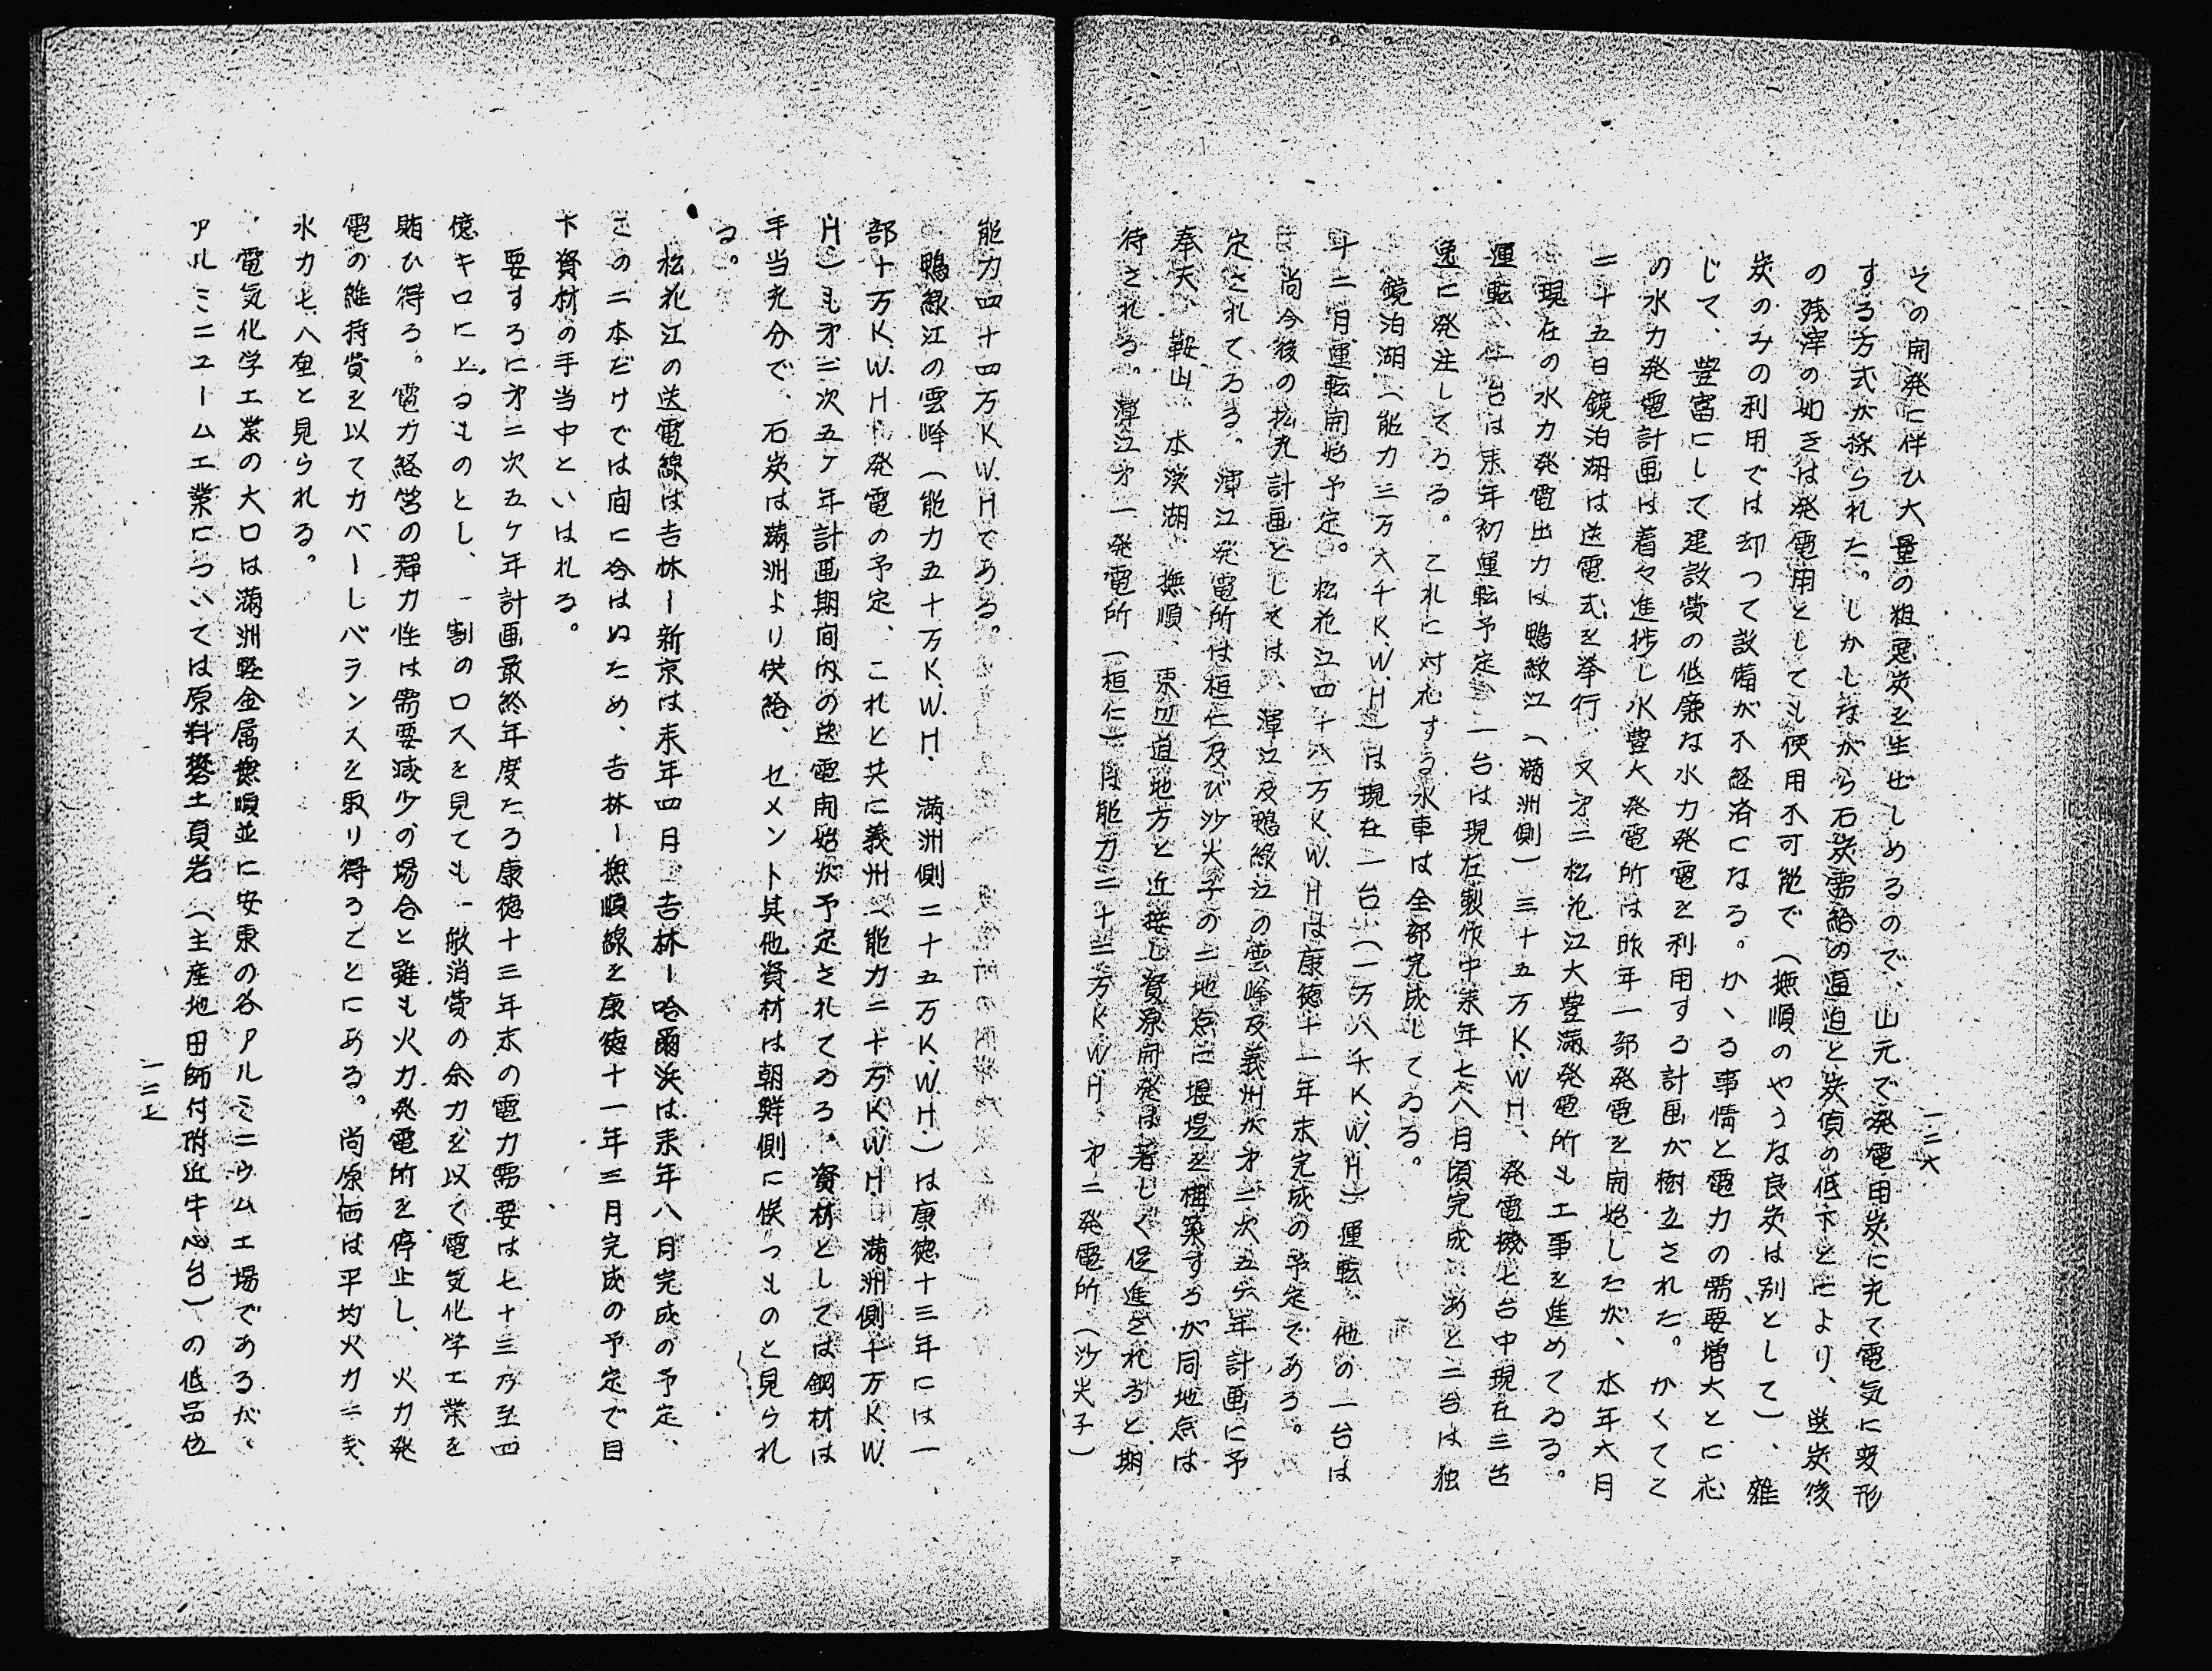 一二六
その開発に伴ひ大量の粗悪炭を生ぜしめるので、山元で発電用炭に充て電気に変形
する方式が採られた。しかしながら石炭需給の逼迫と炭価の低下とにより、送炭後
の残滓の如きは発電用としても使用不可能で(撫順のやうな良炭は別として)、雑
炭のみの利用では却つて設備が不経済になる。かゝる事情と電力の需要増大とに応
じて、豊富にして建設費の低廉な水力発電を利用する計画が樹立された。かくてこ
の水力発電計画は着々進捗し水豊大発電所は昨年一部発電を開始したが、本年六月
二十五日鏡泊湖は送電式を挙行、又才二松花江大豊満発電所も工事を進めてゐる。
現在の水力発電出力は鴨緑江(満洲側)三十五万K.W.H、発電機七台中現在三台
運転、他一台は来年初運転予定、一台は現在製作中来年七八月頃完成、あと二台は独
逸に発注してゐる。これに対応する水車は全部完成してゐる。
鏡泊湖(能力三万六千K.W.H)は現在一台(一万八千K.W.H)運転、他の一台は
十二月運転開始予定。松花江四十八万K.W.Hは康徳十一年末完成の予定である。
尚今後の拡充計画としては、渾江及鴨緑江の雲峰及義州が才二次五ケ年計画に予
定されてゐる。渾江発電所は桓仁及び沙尖子の二地点に堰堤を構築するが同地点は
奉天、鞍山、本渓湖、撫順、東辺道地方と近接し資源開発は著しく促進されると期
待される。渾江才一発電所(桓仁)は能力二十三万K.W.H、才二発電所(沙尖子)
能力四十四万K.W.Hである。
鴨緑江の雲峰(能力五十万K.W.H.満洲側二十五万K.W.H.)は康徳十三年には一
部十万K.W.H発電の予定、これと共に義州(能力二十万K.W.H.満洲側十万K.W.
H.)も才三次五ケ年計画期間内の送電開始が予定されてゐる。資材としては鋼材は
手当充分で、石炭は満洲より供給、セメント其他資材は朝鮮側に俟つものと見られ
る。
松花江の送電線は吉林ー新京は来年四月、吉林ー哈爾浜は来年八月完成の予定、
この二本だけでは間に合はぬため、吉林ー撫順線を康徳十一年三月完成の予定で目
下資材の手当中といはれる。
要するに才二次五ケ年計画最終年度たる康徳十三年末の電力需要は七十三乃至四
億キロに上るものとし、一割のロスを見ても一般消費の余力を以て電気化学工業を
賄ひ得る。電力経営の弾力性は需要減少の場合と雖も火力発電所を停止し、火力発
電の維持費を以てカバーしバランスを取り得ることにある。尚原価は平均火力二銭、
水力七、八厘と見られる。
電気化学工業の大口は満洲軽金属撫順並に安東の各アルミニウム工場であるが、
アルミニユーム工業については原料礬土頁岩(主産地田師付附近牛心台)の低品位
一二七